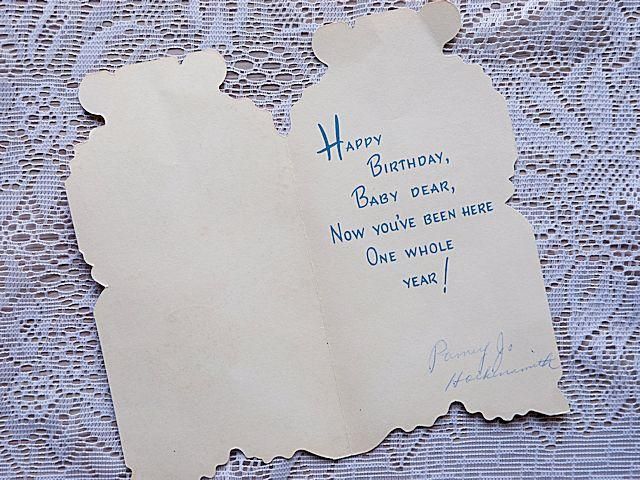 Happy
Birthday,
Baby dear,
Now you've been here
One whole
year!
Jo
Hackensmith